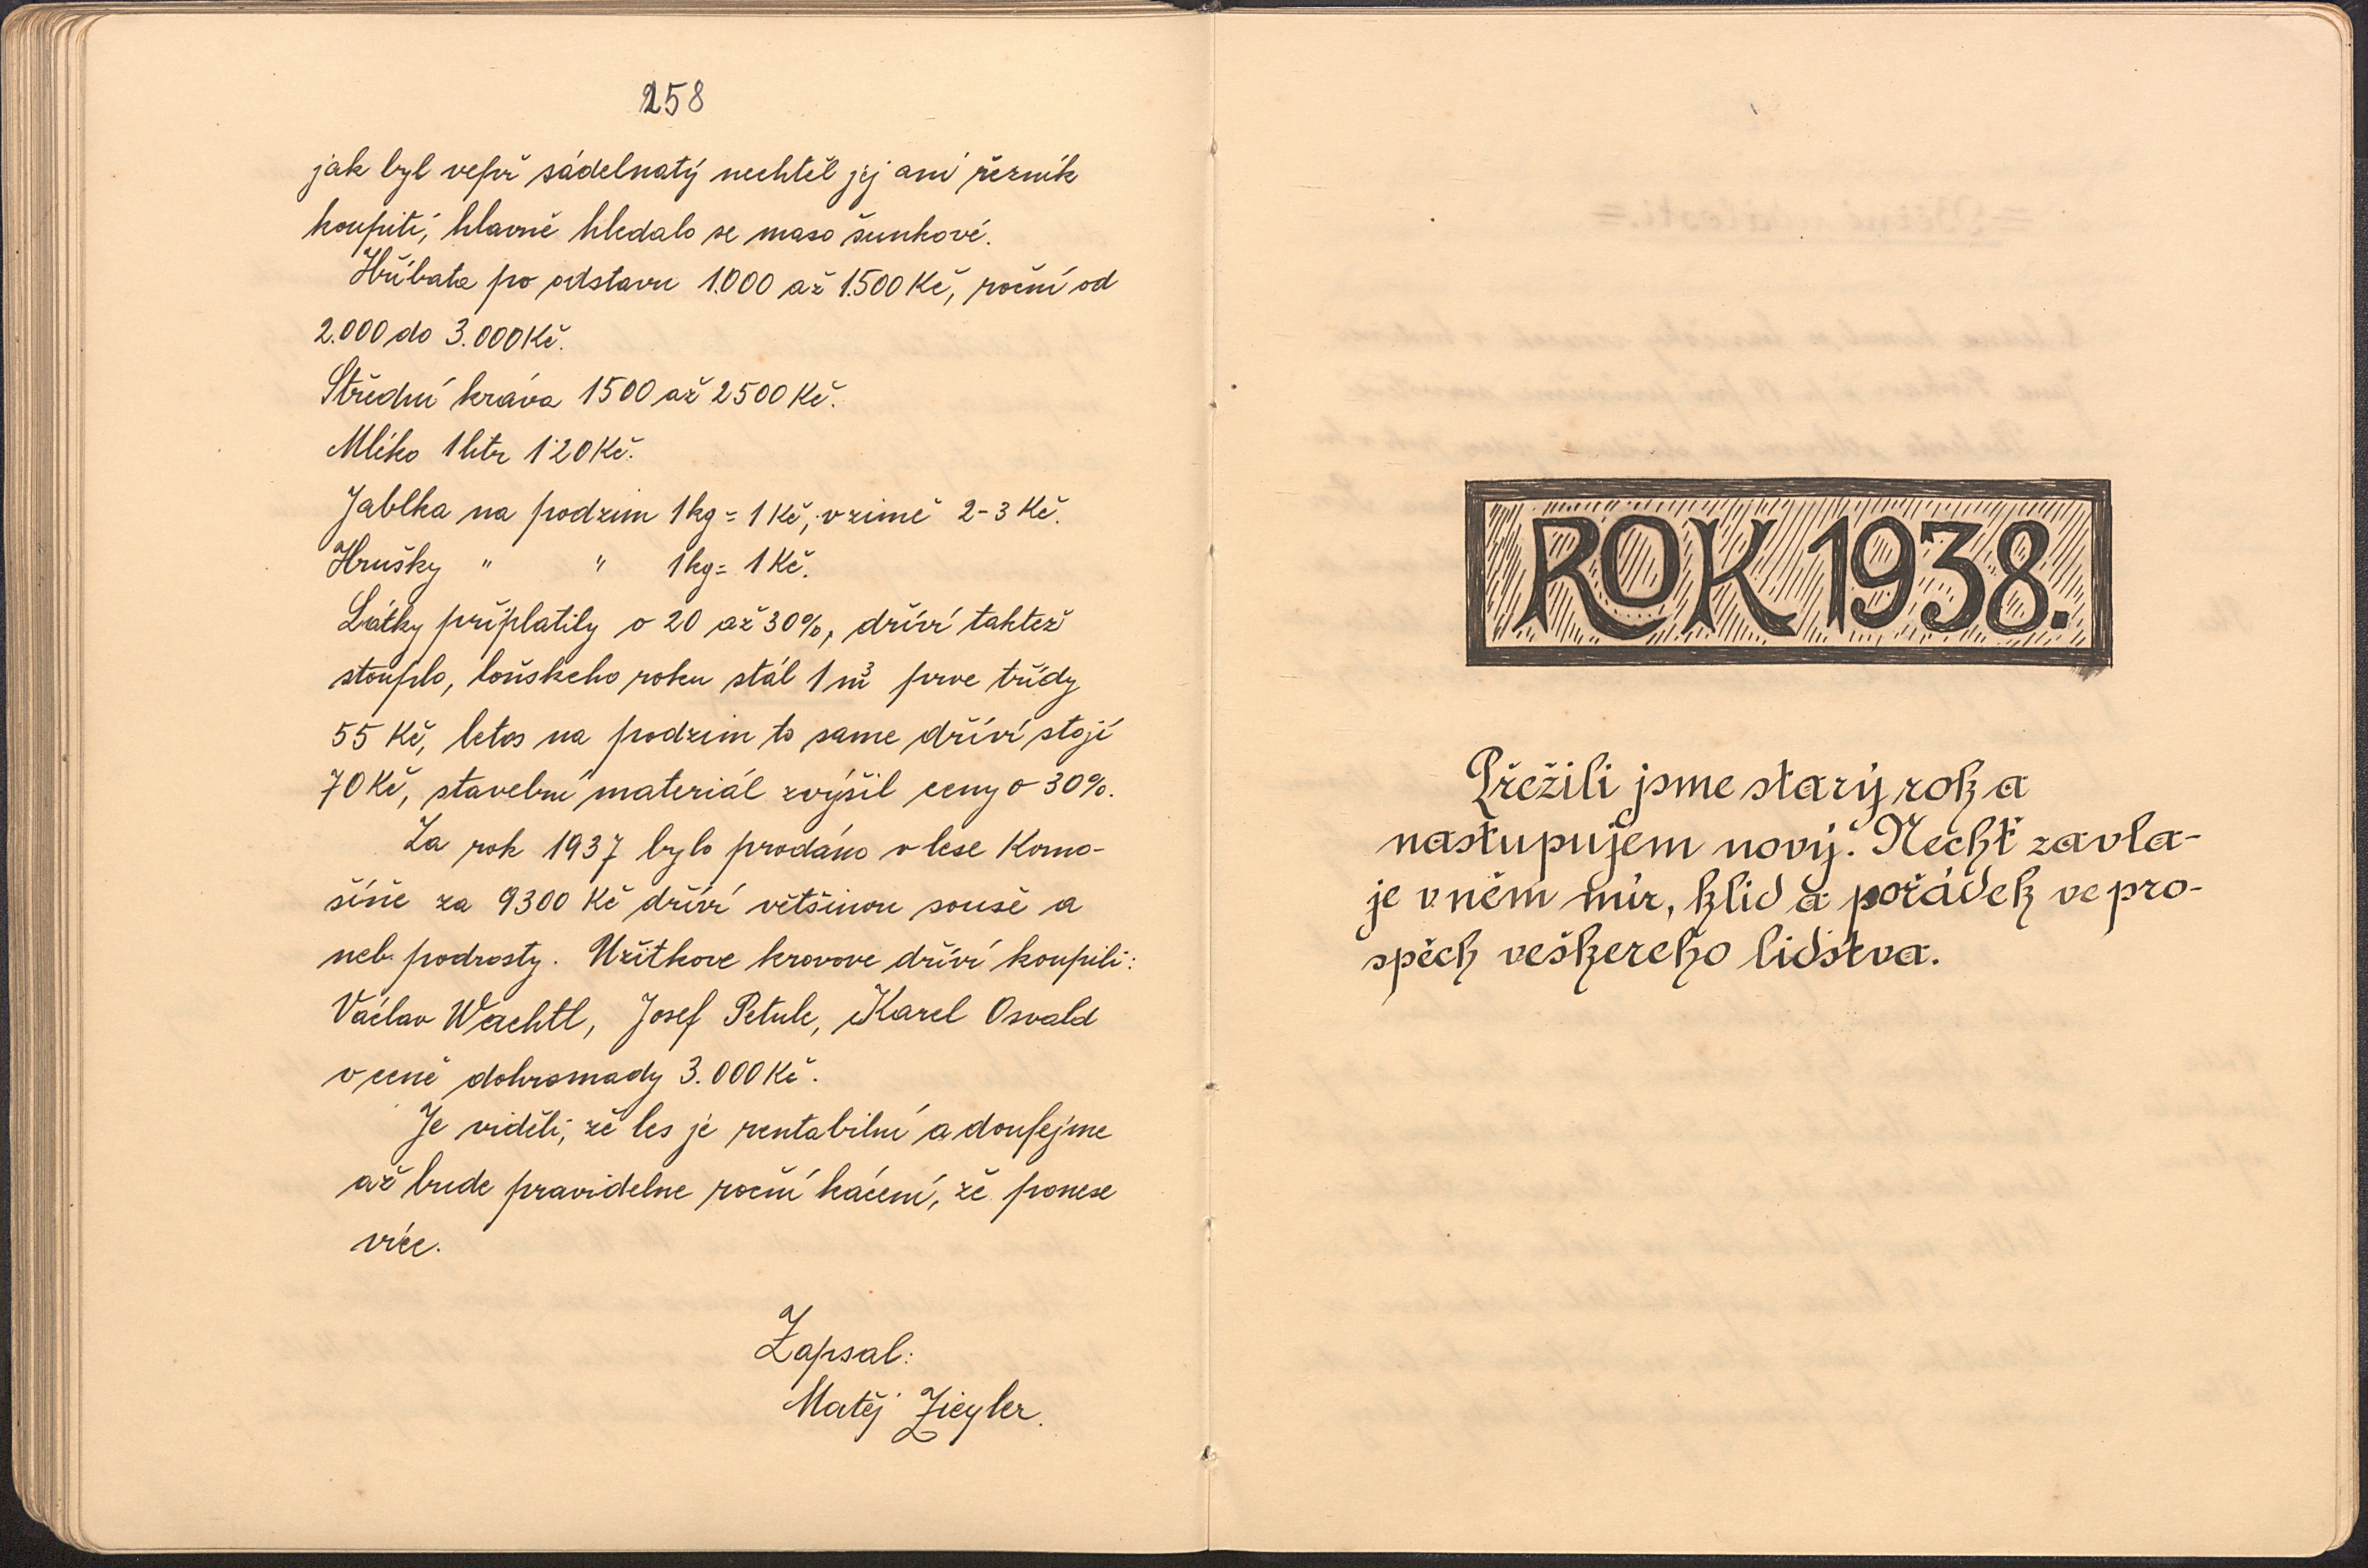 258
jak byl vepř sádelnatý nechtěl jej ani řezník
koupiti, hlavně hledalo se maso šunkové.
Hříbata po odstavu 1.000 až 1.500 Kč, roční od
2.000 do 3.000 Kč.
Střední kráva 1500 až 2500 Kč.
Mléko 1 litr 1·20 Kč.
Jablka na podzim 1 kg = 1 Kč, v zimě 2-3 Kč.
Hrušky " " 1 kg = 1 Kč.
Látky připlatily o 20 až 30%, dříví taktež
stouplo, loňskeho roku stál 1 m³ prve třídy
55 Kč, letos na podzim to same dříví stojí
70 Kč, stavební materiál zvýšil ceny o 30%.
Za rok 1937 bylo prodáno v lese Komo-
šíně za 9300 Kč dříví většinou souše a
neb podrosty. Užitkove krovove dříví koupili:
Václav Wachtl, Josef Petule, Karel Osvald
v ceně dohromady 3.000 Kč.
Je viděti, že les je rentabilní a doufejme
až bude pravidelne roční kácení, že ponese
více.
Zapsal:
Matěj Ziegler.
ROK 1938.
Přežili jsme starý rok a
nastupujem nový. Nechť zavla-
je v něm mír, klid a pořádek ve pro-
spěch veškereho lidstva.